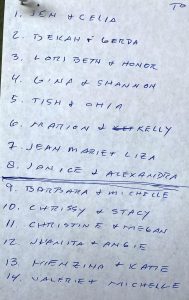 TO
1. JEN & CELIA
2. BEKAH & GERDA
3. LORI BETH & HONOR
4. GINA & SHANNON
5. TISH & OHIA
6. MARION & KELLY
7. JEAN MARIE & LIZA
8. JANICE & ALEXANDRA
9. BARBARA & MICHELLE
10. CHRISSY & STACY
11. CHRISTINE & MEGAN
12. JUANITA & ANGIE
13. & KATIE
14. VALERIE & MICHELLE